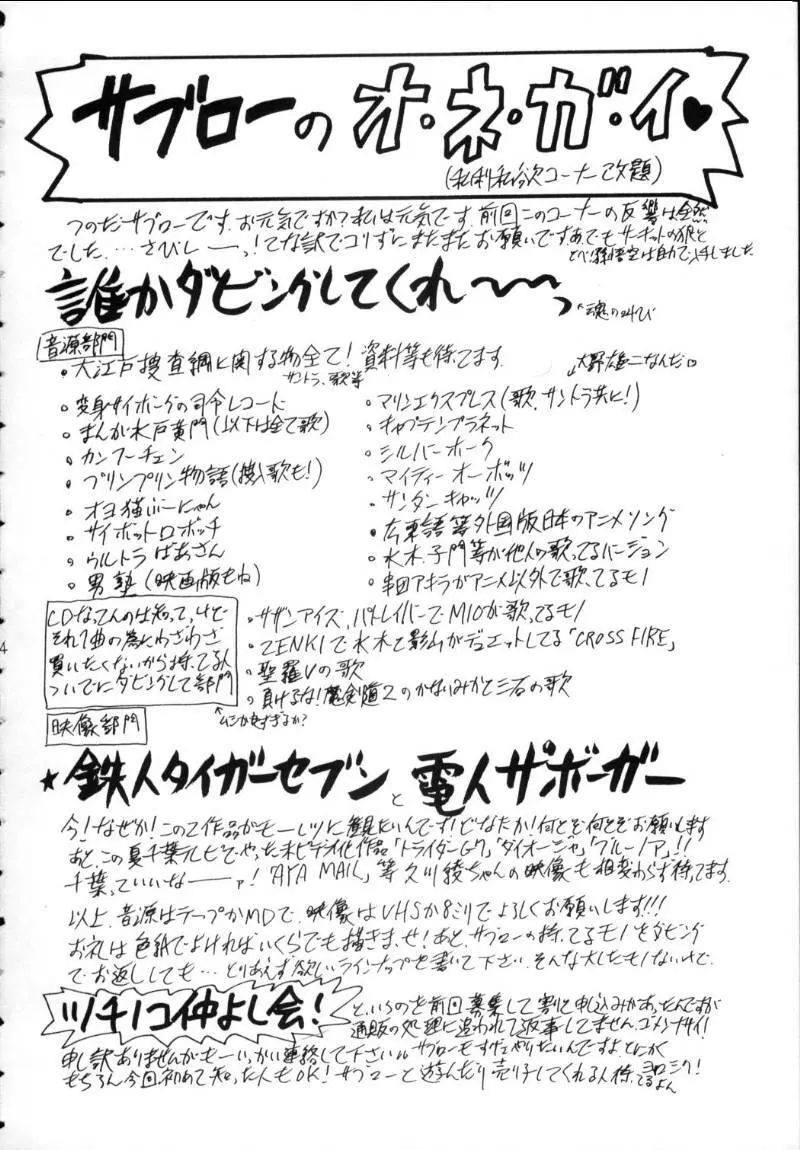 サブローのオ・ネ・ガ・イ♥
(私利私欲コーナー改題)
つのだサブローです。お元気ですか?私は元気です。前回このコーナーの反響は全然
でした…さびしーっ!てな訳でコリずにまたまたお願いです。あ、でもサーキットの狼と
とべ!孫悟空は自力で入手しました。
誰かダビングしてくれ〜〜っ
↑魂の叫び
音源部門
・大江戸捜査網に関する物全て!資料等も待ってます。
サントラ、歌等
↓大野雄二なんだ♡
・変身サイボーグの司令レコード
・まんが水戸黄門(以下は全て歌)
・カンフーチェン
・プリンプリン物語(挿入歌も!)
・オヨネコぶーにゃん
・サイボットロボッチ
・ウルトラばあさん
・男塾(映画版もね)
・マリンエクスプレス(歌、サントラ共に!)
・キャプテンプラネット
・シルバーホーク
・マイティーオーボッツ
・サンダーキャッツ
・広東語等外国版日本のアニメソング
・水木、子門等が他人の歌ってるバージョン
・串田アキラがアニメ以外で歌ってるモノ
CDなってんのは知ってっけど
それ1曲の為にわざわざ
買いたくないから持ってる人
ついでにダビングして部門
↑ムシが良すぎるか?
・サザンアイズ、パトレイバーでMIOが歌ってるモノ
・ZENKIで水木と影山がデュエットしてる「CROSS FIRE」
・聖羅Vの歌
・負けるな!魔剣道2のかないみかと三石の歌
映像部門
★鉄人タイガーセブンと電人ザボーガー
今!なぜか!この2作品がモーレツに観たいんです!どなたか!何とぞ何とぞお願いします
あと、この夏千葉テレビでやった未ビデオ化作品「トライダーG7」「ダイオージャ」「ブルーノア」!!
千葉っていいなーァ!「AYA MAIL」等久川綾ちゃんの映像も相変わらず待ってます。
以上、音源はテープかMDで、映像はVHSか8ミリでよろしくお願いします!!!
お礼は色紙でよければいくらでも描きまっせ!あと、サブローの持ってるモノをダビング
でお返ししても…とりあえず欲しいラインナップを書いて下さい。そんな大したモノないけど。
ツチノコ仲よし会!
というのを前回募集して割と申込みがあったんですが
通販の処理に追われて返事してません。ゴメンナサイ!
申し訳ありませんがもーいっかい連絡して下さい。サブローもすげェやりたいんですよとにかく
もちろん今回初めて知った人もOK!サブローと遊んだり売り子してくれる人待ってるよん
ヨロシク!
4